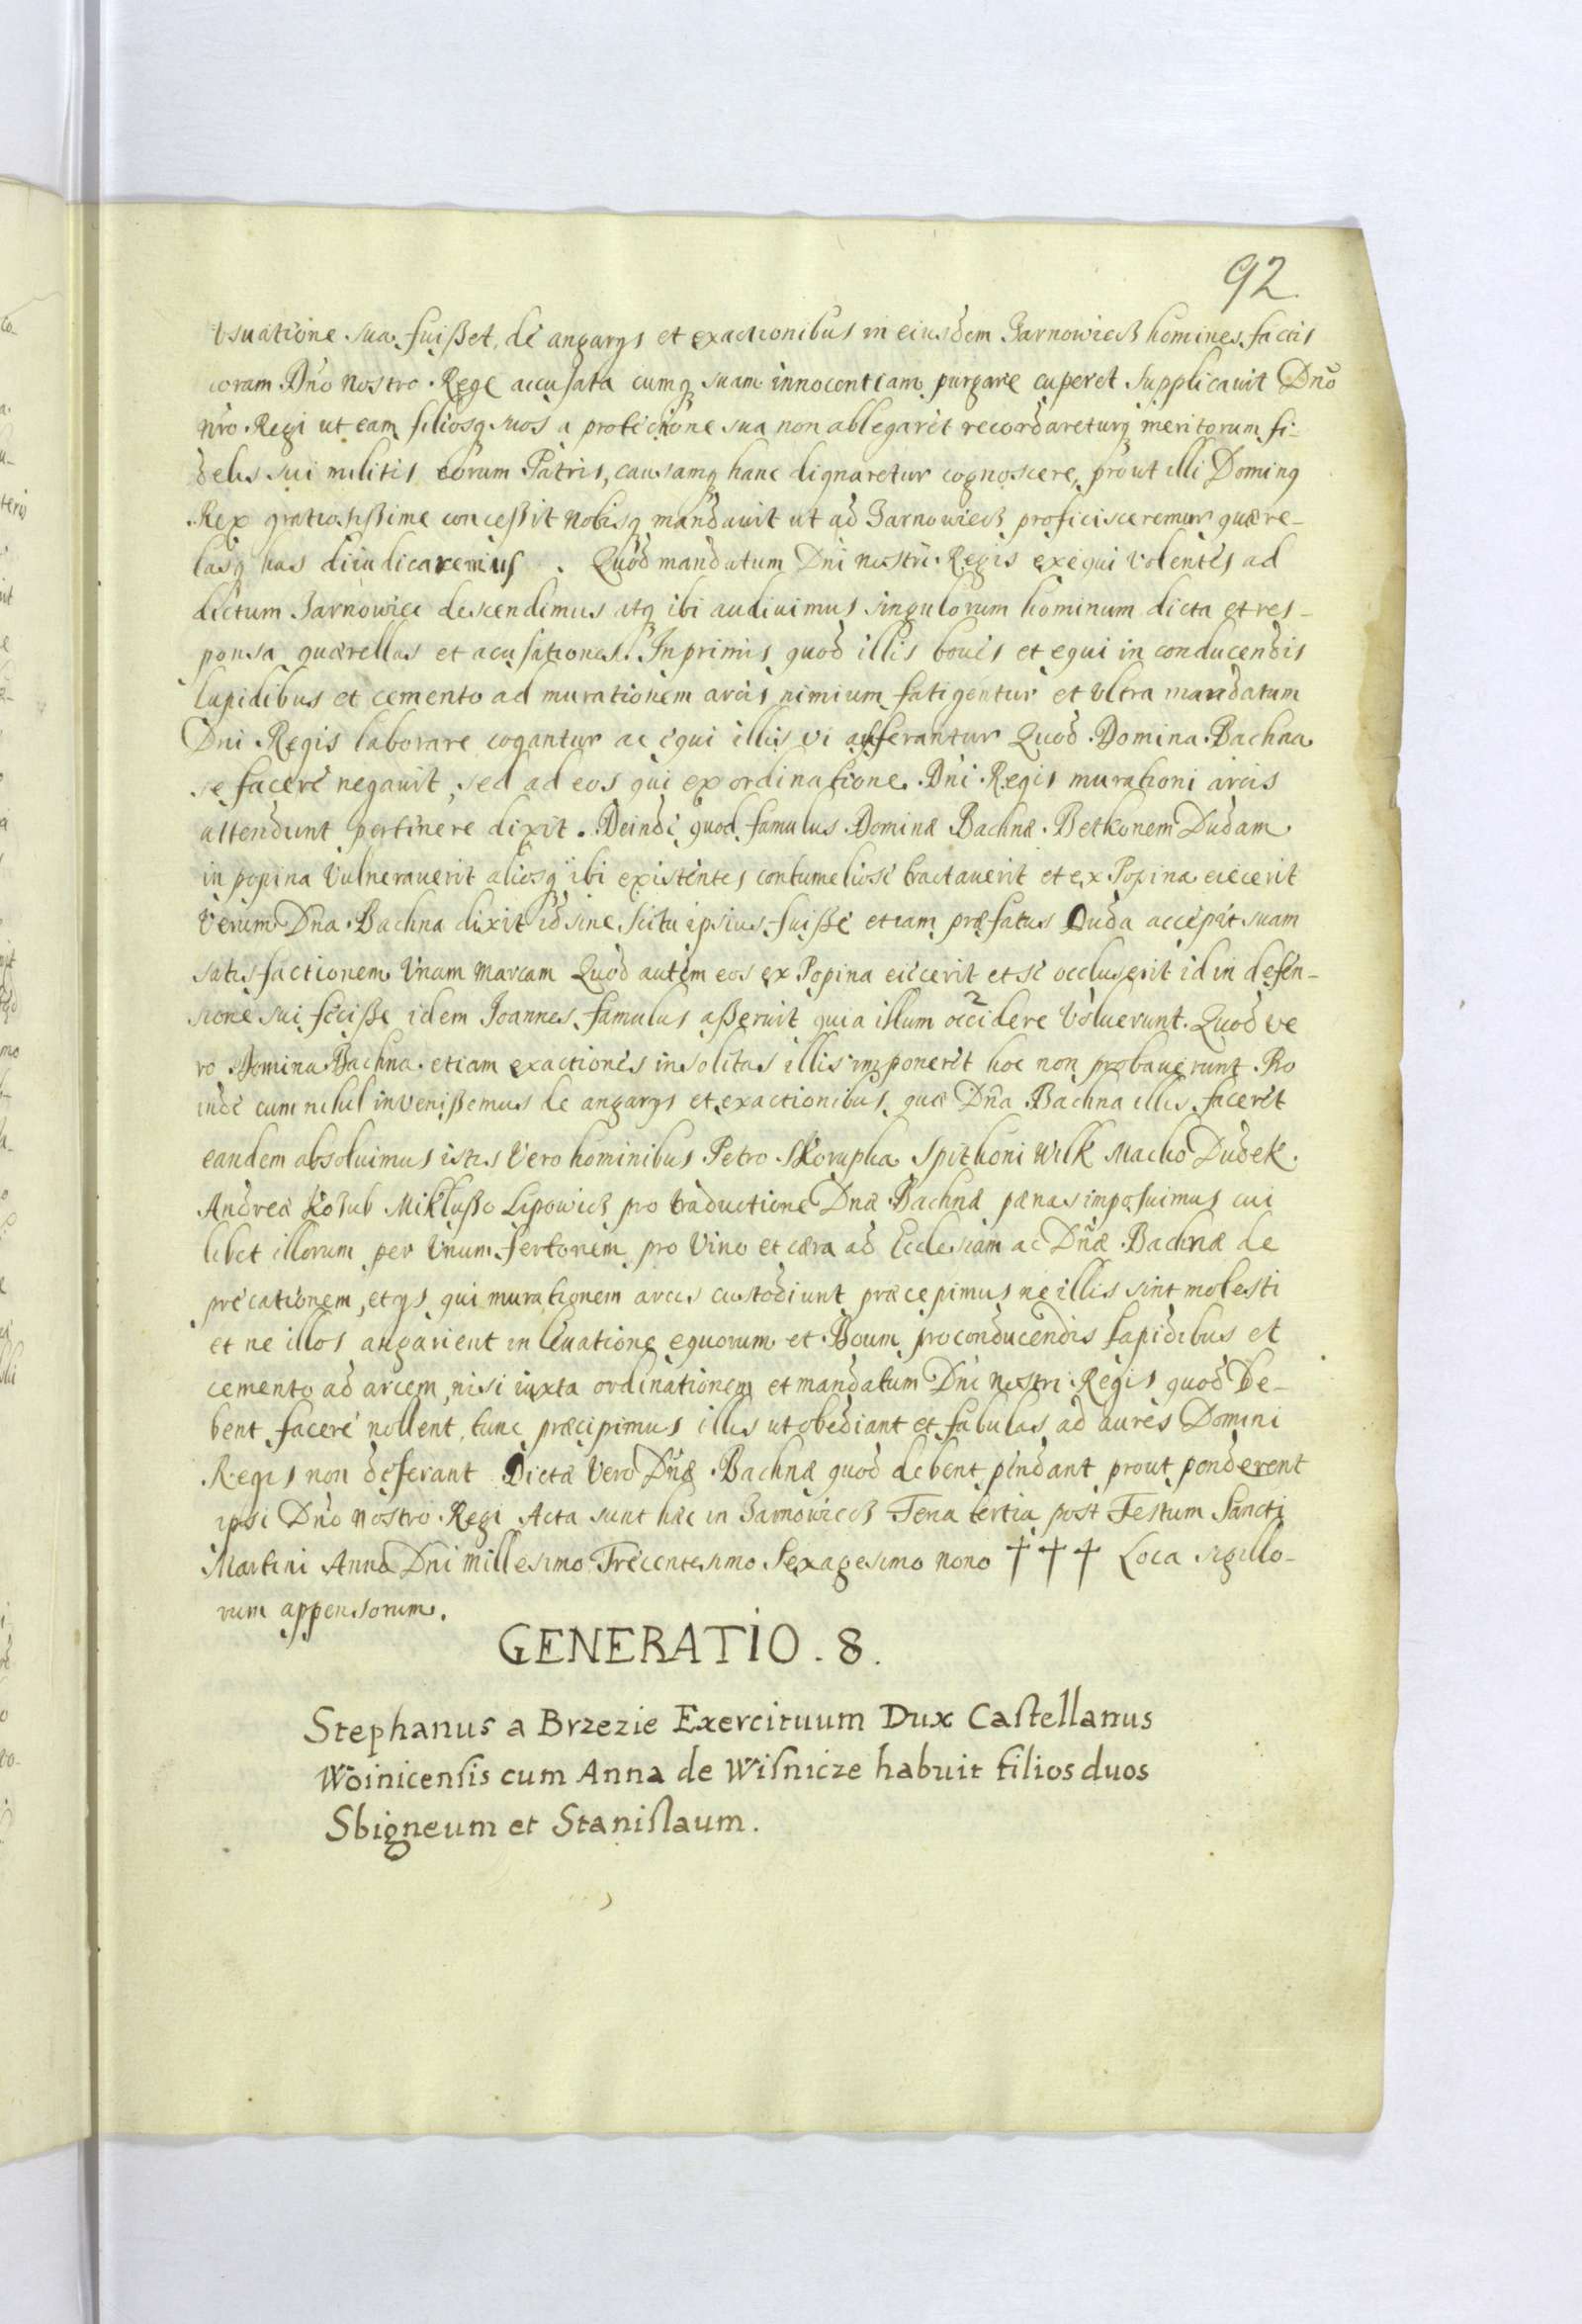 92
vsuatione sua fuißet, de angarys et exactionibus in eiusdem Zarnowiecz homines factis
coram Dno nostro Rege accusata cumq suam innocentiam purgare cuperet supplicauit Dno
nro Regi ut eam filiosq suos a protectione sua non ablegaret recordareturq meritorum fi-
delis sui militis eorum Patris, causamq hanc dignaretur cognoscere, prout illi Dominq
Rex gratiosißime conceßit nobisq mandauit ut ad Zarnowiecz proficisceremur quære-
lasq has diiudicaremus. Quod mandatum Dni nostri Regis exequi volentes ad
dictum Zarnowice descendimus atq ibi audiuimus singulorum hominum dicta et res-
ponsa quærellas et acusationes. Inprimis quod illis boues et equi in conducendis
lapidibus et cemento ad murationem arcis nimium fatigentur et vltra mandatum
Dni Regis laborare cogantur ac equi illis vi auferantur Quod Domina Bachna
se facere negauit, sed ad eos qui ex ordinatione Dni Regis murationi arcis
attendunt pertinere dixit. Deinde quod famulus Dominæ Bachnæ Betkonem Dudam
in popina vulnerauerit aliosq ibi existentes contumeliose tractauerit et ex Popina eiecerit
verum Dna Bachna dixit id sine scitu ipsius fuiße etiam præfatus Duda accepit suam
satisfactionem Vnam marcam Quod autem eos ex Popina eiecerit et se occluserit id in defen-
sione sui feciße idem Joannes famulus aßeruit quia illum occidere Voluerunt. Quod ve
ro Domina Bachna etiam exactiones insolitas illis imponeret hoc non probauerunt. Pro
inde cum nihil invenißemus de angarys et exactionibus quæ Dna Bachna illis faceret
eandem absoluimus istis vero hominibus Petro Skorupka Spithoni Wilk Macko Dudek
Andreæ Kozub Miklußo Lipowicz pro traductione Dnæ Bachnæ pænas imposuimus cui
libet illorum per Vnum fertonem pro Vino et cæra ad Ecclesiam ac Dnæ Bachnæ de
precationem, et ys qui murationem arcis custodiunt præcepimus ne illis sint molesti
et ne illos angarient in leuatione equorum et Boum pro conducendis lapidibus et
cemento ad arcem, nisi iuxta ordinationem et mandatum Dni nostri Regis quod De-
bent facere nollent, tunc præcipimus illis ut obediant et fabulas ad aures Domini
Regis non deferant Dictæ Vero Dnæ Bachnæ quod debent pendant prout penderent
ipsi Dno nostro Regi Acta sunt hæc in Zarnowiecz Feria tertia post Festum Sancti
Martini Anno Dni millesimo Trecentesimo Sexagesimo nono ††† Loca sigillo-
rum appensorum.
GENERATIO . 8.
Stephanus a Brzezie Exercituum Dux Castellanus
Woinicensis cum Anna de Wisnicze habuit filios duos
Sbigneum et Stanislaum.